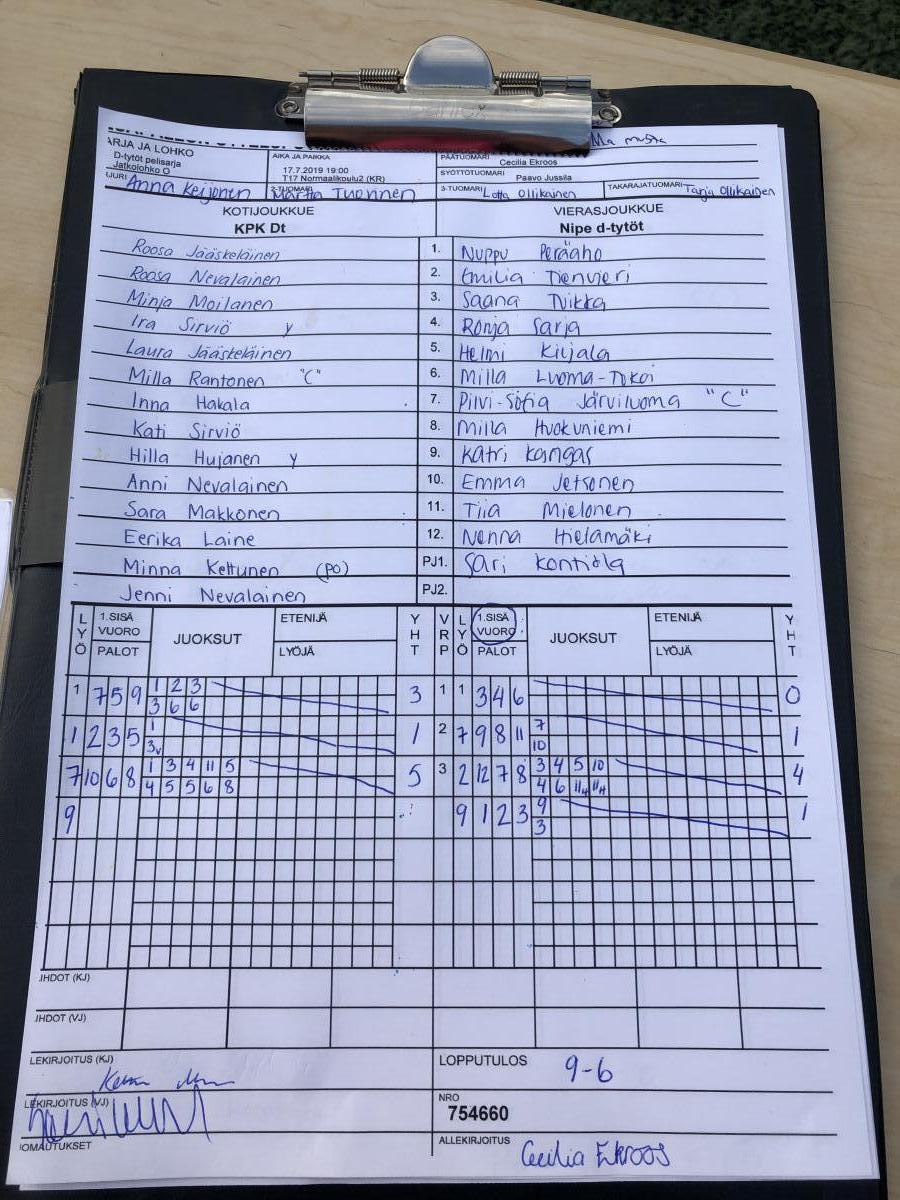 ARJA JA LOHKO
D-tytöt pelisarja
Jatkolohko O
AIKA JA PAIKKA
17.7.2019 19:00
T17 Normaalikoulu2 (KR)
PÄÄTUOMARI
Cecilia Ekroos
SYÖTTÖTUOMARI
Paavo Jussila
JURI Anna Keijonen
2-TUOMARI Martta Tuovinen
3-TUOMARI Lotta Ollikainen
TAKARAJATUOMARI Tarja Ollikainen
KOTIJOUKKUE
KPK Dt
VIERASJOUKKUE
Nipe d-tytöt
Roosa Jääskeläinen 1. Nuppu Perääho
Roosa Nevalainen 2. Emilia Tienvieri
Minja Moilanen 3. Saana Tuikka
Ira Sirviö y 4. Ronja Sarja
Laura Jääskeläinen 5. Helmi Kiljala
Milla Rantonen "C" 6. Milla Luoma-Tokoi
Inna Hakala 7. Pilvi-Sofia Järviluoma "C"
Kati Sirviö 8. Milla Huokuniemi
Hilla Hujanen y 9. Katri Kangas
Anni Nevalainen 10. Emma Jetsonen
Sara Makkonen 11. Tiia Mielonen
Eerika Laine 12. Nenna Hielamäki
Minna Kettunen (PO) PJ1. Sari Kontiola
Jenni Nevalainen PJ2.
LYÖ 1.SISÄ VUORO PALOT JUOKSUT ETENIJÄ LYÖJÄ YHT VRP LYÖ 1.SISÄ VUORO PALOT JUOKSUT ETENIJÄ LYÖJÄ YHT
1 7 5 9 1 2 3 3 1 1 3 4 6 0
3 6 6
1 2 3 5 1 1 2 7 9 8 11 7 1
3v 10
7 10 6 8 1 3 4 11 5 5 3 2 12 7 8 3 4 5 10 4
4 5 5 6 8 4 6 11H 11H
9 9 1 2 3 9 1
3
IHDOT (KJ)
IHDOT (VJ)
LEKIRJOITUS (KJ)
LOPPUTULOS 9-6
LEKIRJOITUS (VJ)
NRO
754660
OMAUTUKSET
ALLEKIRJOITUS Cecilia Ekroos